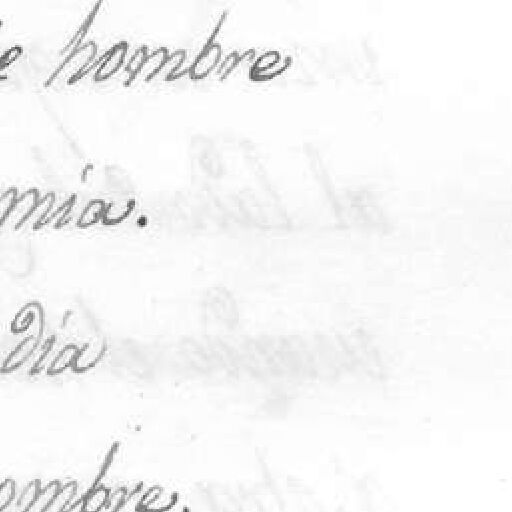 e hombre
mía.
día
ombre.